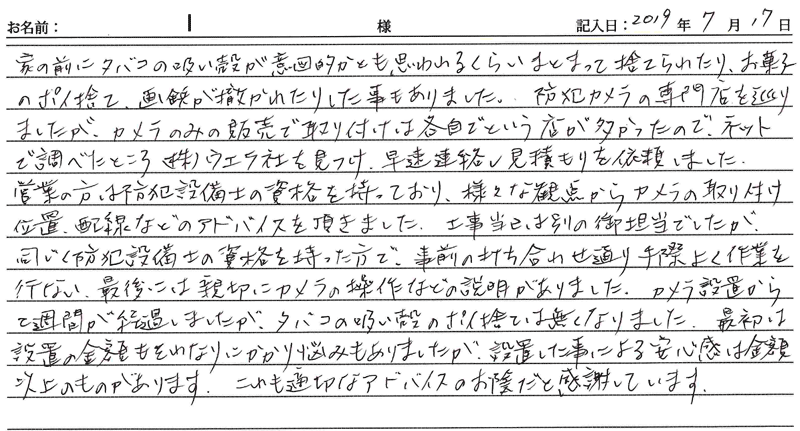 お名前： 様 記入日：2019年7月17日
家の前にタバコの吸い殻が意図的かとも思われるくらいまとまって捨てられたり、お菓子
のポイ捨て、画鋲が撒かれたりした事もありました。防犯カメラの専門店を巡り
ましたが、カメラのみの販売で取り付けは各自でという店が多かったので、ネット
で調べたところ(株)ウエラ社を見つけ、早速連絡し見積もりを依頼しました。
営業の方は防犯設備士の資格を持っており、様々な観点からカメラの取り付け
位置、配線などのアドバイスを頂きました。工事当日は別の御担当でしたが、
同じく防犯設備士の資格を持った方で、事前の打ち合わせ通り手際よく作業を
行ない、最後には親切にカメラの操作などの説明がありました。カメラ設置から
2週間が経過しましたが、タバコの吸い殻のポイ捨ては無くなりました。最初は
設置の金額もそれなりにかかり悩みもありましたが、設置した事による安心感は金額
以上のものがあります。これも適切なアドバイスのお陰だと感謝しています。